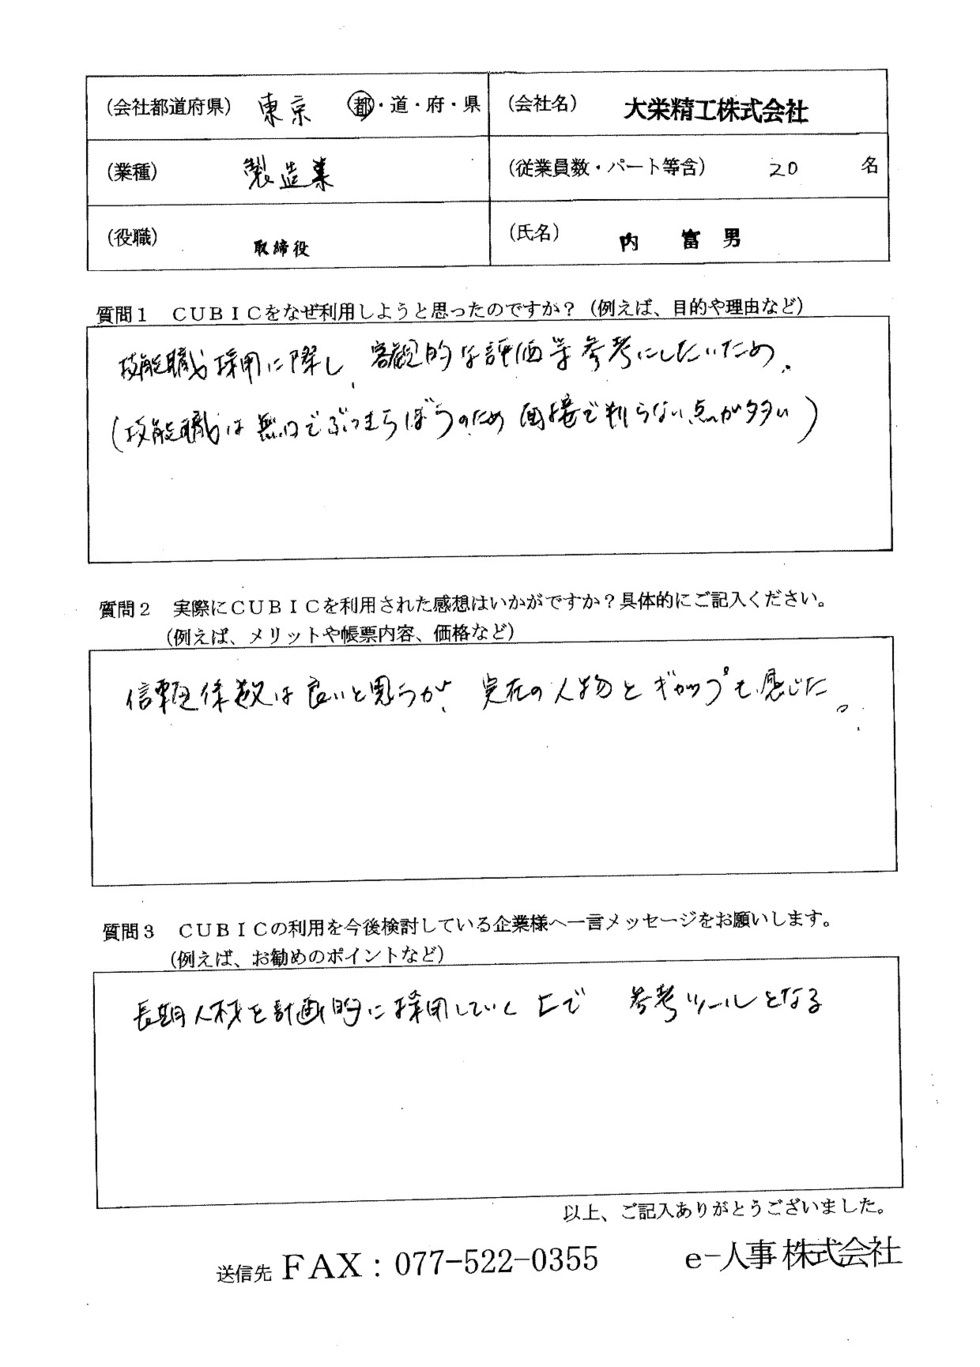 (会社都道府県) 東京 都・道・府・県 (会社名) 大栄精工株式会社
(業種) 製造業 (従業員数・パート等含) 20 名
(役職) 取締役 (氏名) 内 富男
質問1 CUBICをなぜ利用しようと思ったのですか？(例えば、目的や理由など)
技能職採用に際し、客観的な評価等参考にしたいため.
(技能職は無口でぶっきらぼうのため 面接で判らない点が多い)
質問2 実際にCUBICを利用された感想はいかがですか？具体的にご記入ください。
(例えば、メリットや帳票内容、価格など)
信頼係数は良いと思うが、実在の人物とギャップも感じた。
質問3 CUBICの利用を今後検討している企業様へ一言メッセージをお願いします。
(例えば、お勧めのポイントなど)
長期人材を計画的に採用していく上で 参考ツールとなる
以上、ご記入ありがとうございました。
送信先 FAX：077-522-0355 e-人事株式会社